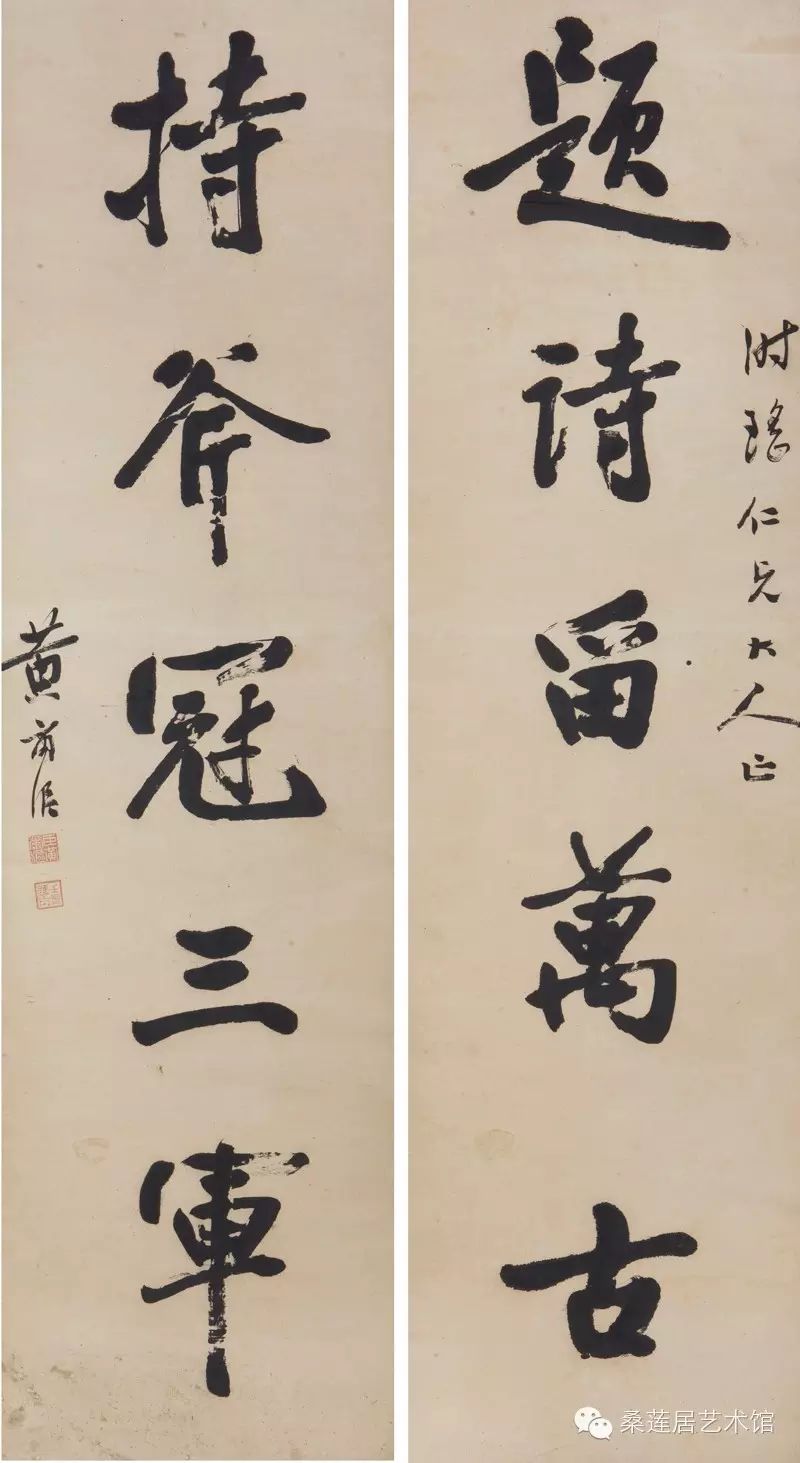 題詩留萬古
時瑤仁兄大人正
持斧冠三軍
黃
桑莲居艺术馆